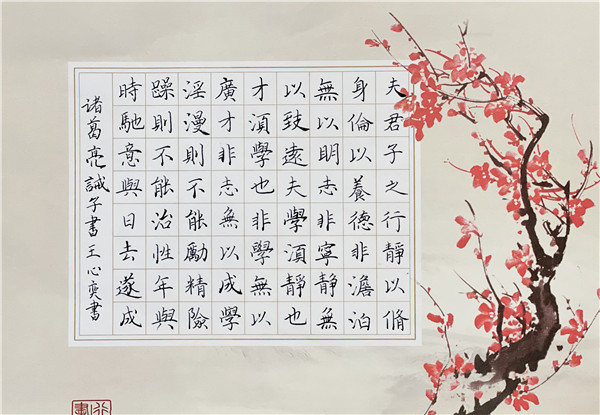 夫君子之行靜以脩
身倫以養德非澹泊
無以明志非寧靜無
以致遠夫學湏靜也
才湏學也非學無以
廣才非志無以成學
淫漫則不能勵精險
躁則不能治性年與
時馳意與日去遂成
诸葛亮誡子書王心奕書